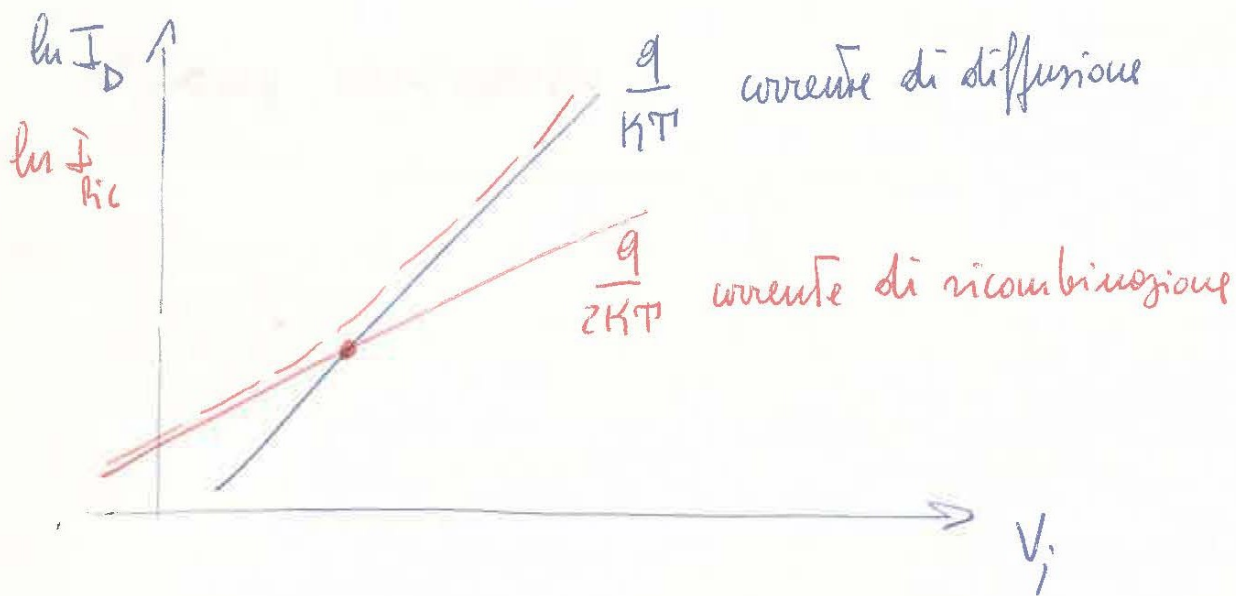 ln I_D
q/KT corrente di diffusione
ln I_Ric
q/2KT corrente di ricombinazione
V_j